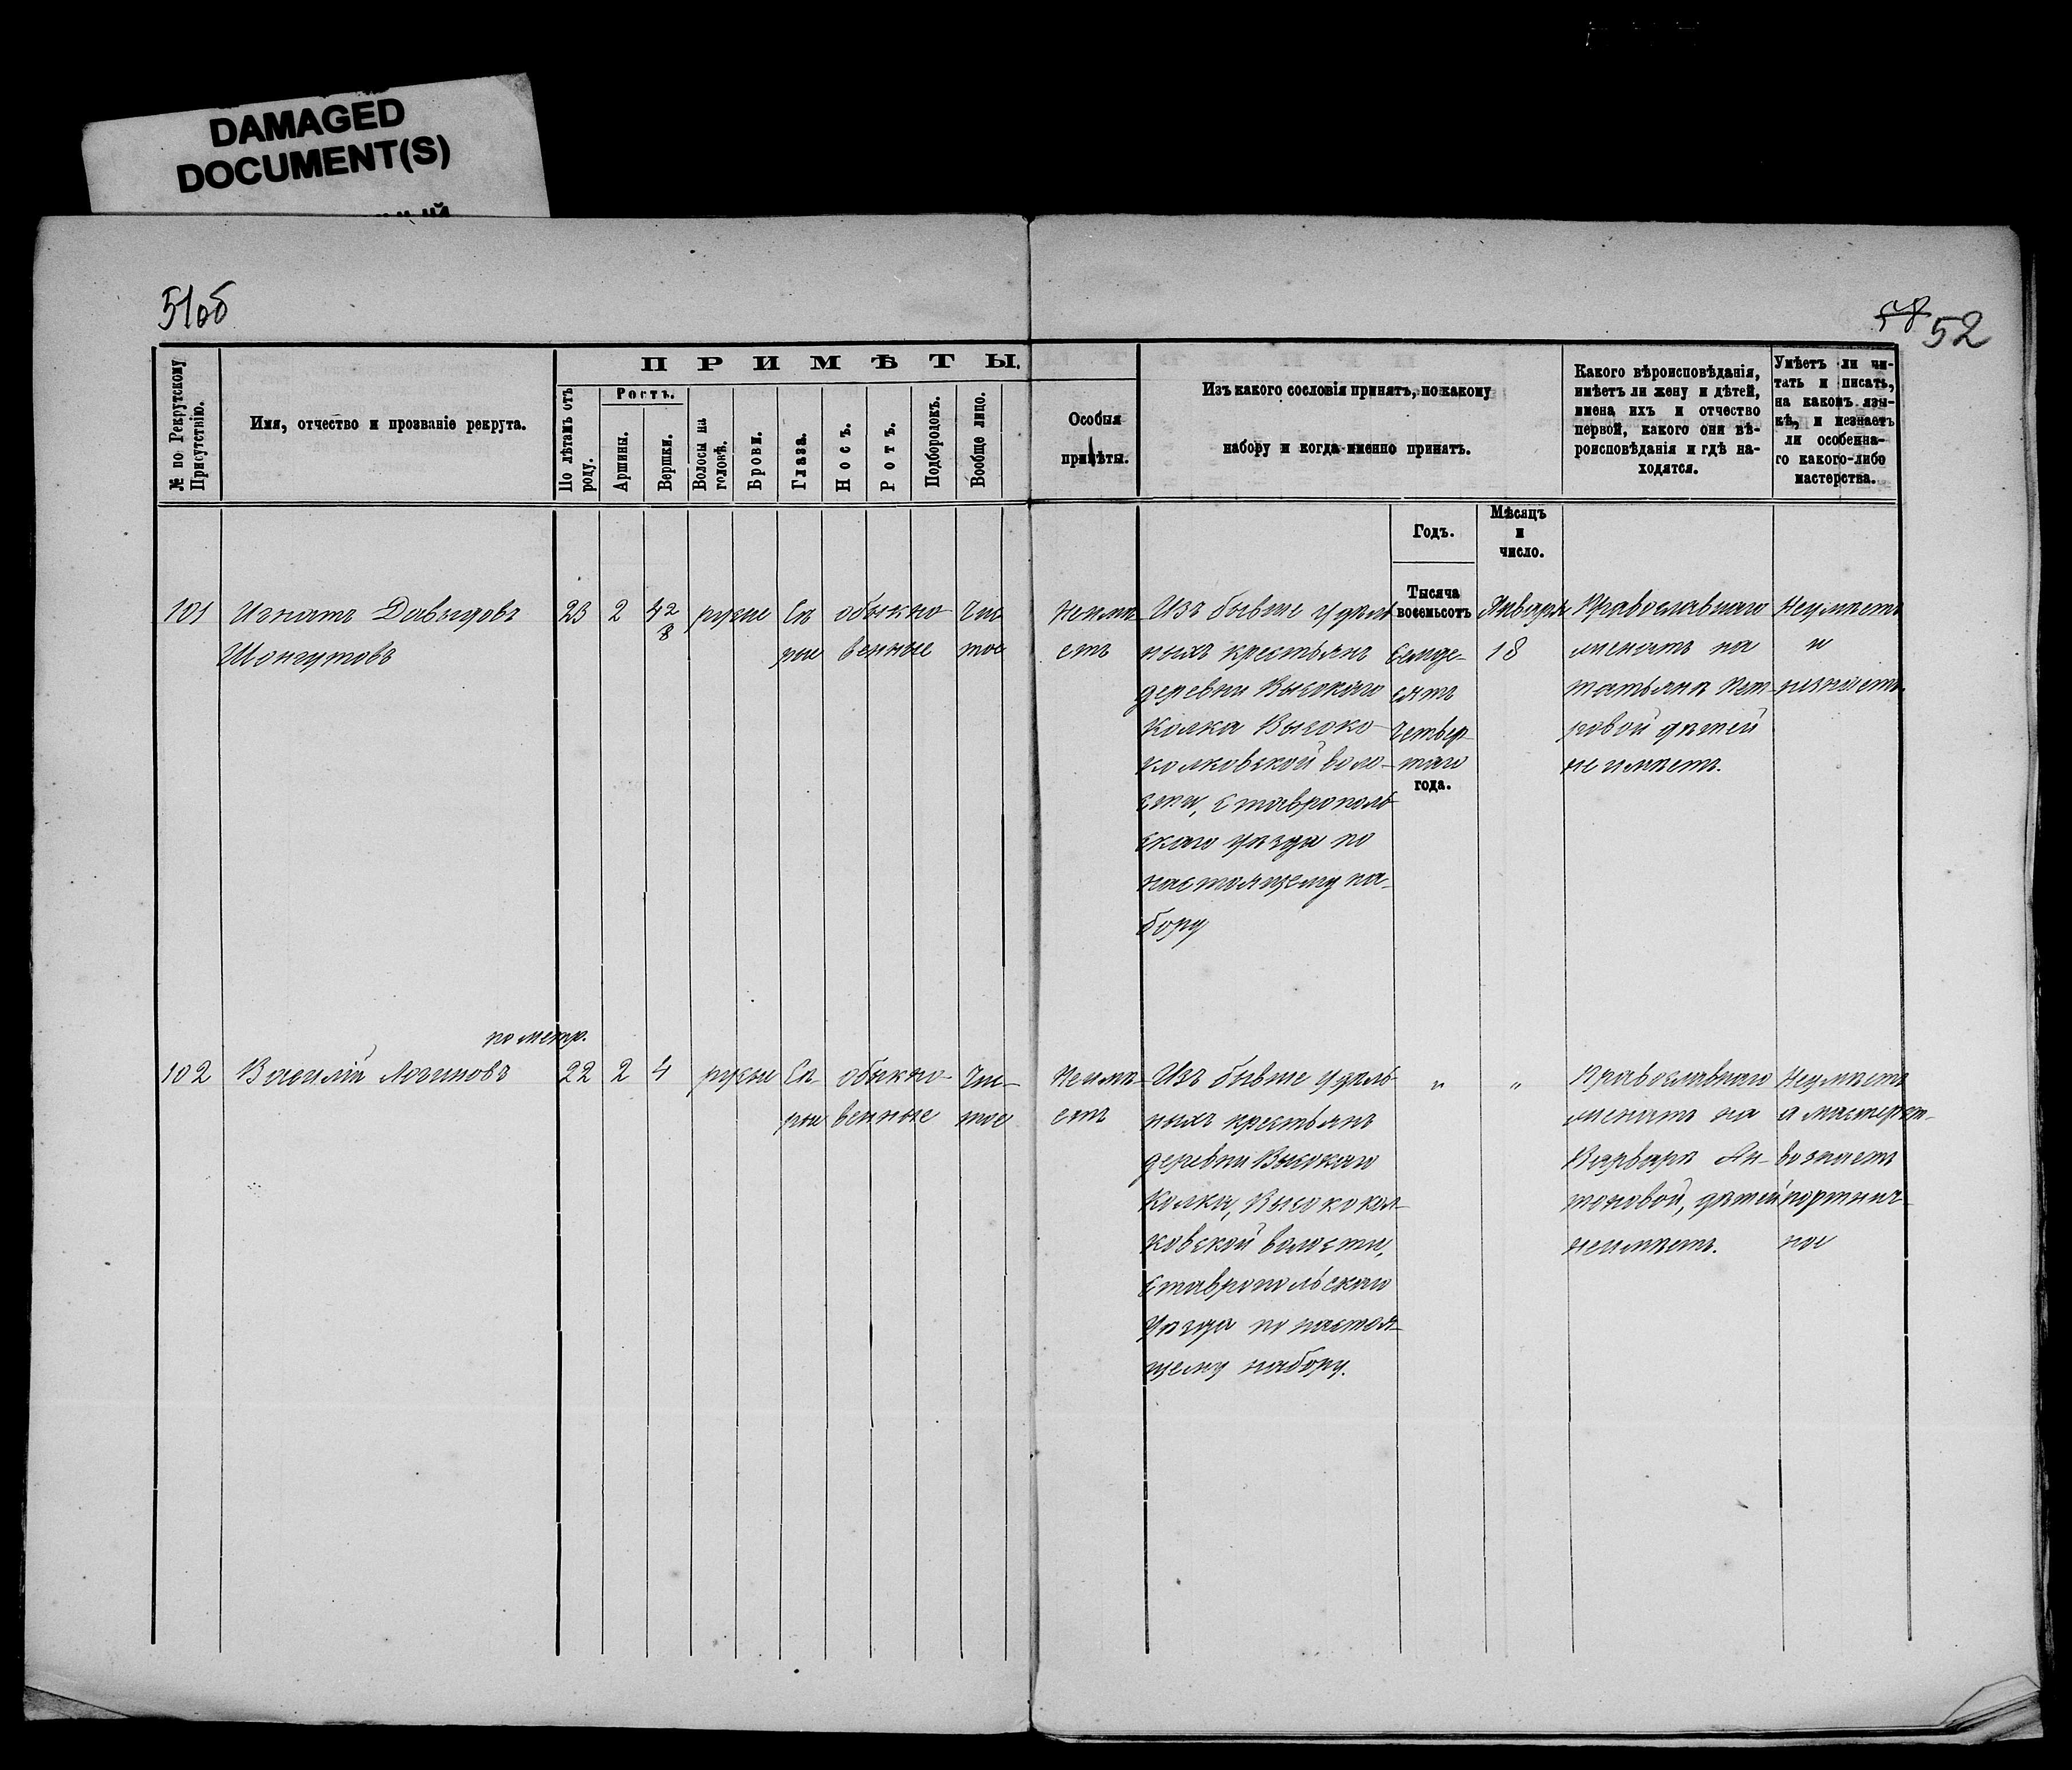 DAMAGED
DOCUMENT(S)
51об
58 52
№ по Рекрутскому
Присутствію.
Имя, отчество и прозваніе рекрута.
ПРИМѢТЫ.
По лѣтамъ отъ
роду.
Ростъ.
Аршины.
Вершки.
Волосы на
головѣ.
Брови.
Глаза.
Носъ.
Ротъ.
Подбородокъ.
Вообще лицо.
Особыя
примѣты.
Изъ какого сословія принятъ, по какому
набору и когда именно принятъ.
Какого вѣроисповѣданія,
имѣетъ ли жену и дѣтей,
имена ихъ и отчество
первой, какого они вѣ-
роисповѣданія и гдѣ на-
ходятся.
Умѣетъ ли чи-
тать и писать,
на какомъ язы-
кѣ, и незнаетъ
ли особенна-
го какого-либо
мастерства.
Годъ.
Мѣсяцъ
и
число.
101
Игнатъ Давыдовъ
23
2
4 2/8
русые
Сѣ
рые
обыкно
венные
Чис
тое
Неимѣ
етъ
Изъ бывше удѣль
ныхъ крестьянъ
деревни Высокаго
Колка Высоко-
колковской воло-
сти, Ставрополь
скаго уѣзда по
настоящему на-
бору
Тысяча
восемьсотъ
Семде-
сятъ
Четвер-
таго
года.
Января
18
Православнаго
женатъ на
Татьянѣ Пет-
ровой дѣтей
не имѣетъ.
Неумѣетъ
и
незнаетъ.
по метр.
102
Василій Логиновъ
22
2
4
русые
Сѣ-
рые
обыкно-
венные
Чис-
тое
Неимѣ-
етъ
Изъ бывше удѣль
ныхъ крестьянъ
деревни Высокаго
Колка, Высококол-
ковской волости,
Ставропольскаго
Уѣзда по настоя-
щему набору.
"
"
Православнаго
женатъ на
Варварѣ Ан-
тоновой, дѣтей
неимѣетъ.
Неумѣетъ
а мастерст-
во знаетъ
портнич-
ное